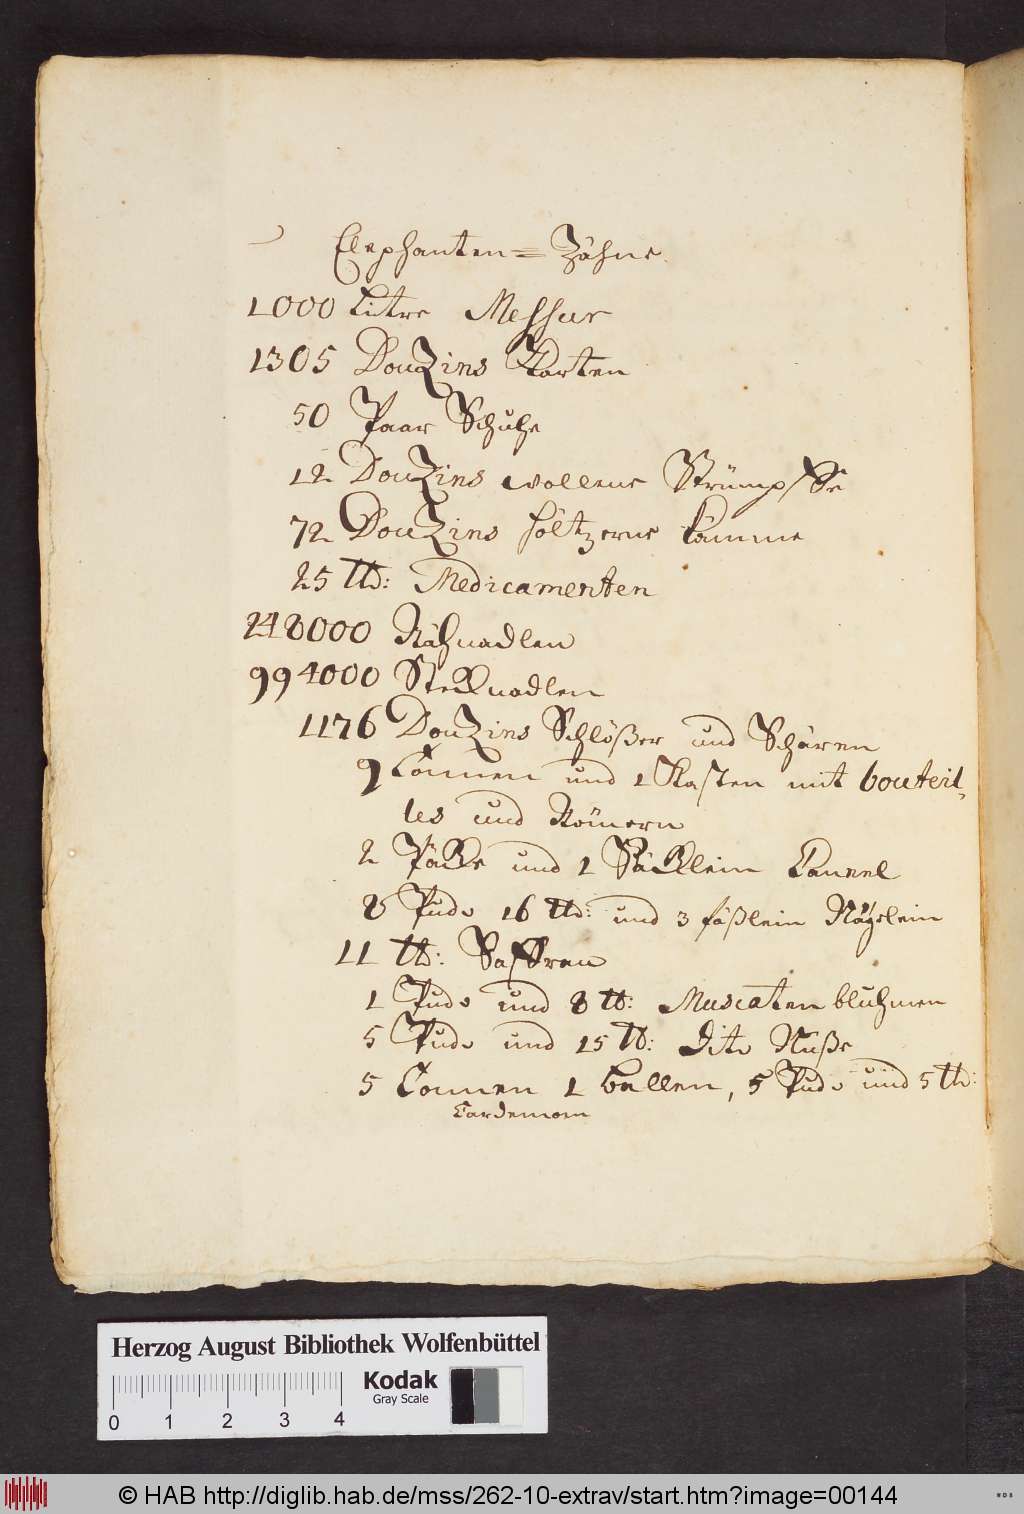 Elephanten= Zähne
1000 Litre Messur
1305 Douzins Karten
50 Paar Schuhe
12 Douzins wollene Strümpffe
72 Douzins höltzerne Kämme
25 ℔: Medicamenten
248000 Nähnadlen
994000 Stecknadlen
1176 Douzins Schlößer und Schären
9 Tonnen und 1 Kasten mit bouteil-
les und Römern
2 Päcke und 1 Säcklein Caneel
8 Pudo 16 ℔: und 3 fäßlein Nägelein
11 ℔: Saffran
1 Pudo und 8 ℔: Muscaten bluhmen
5 Pudo und 15 ℔: Dito Nuße
5 Tonnen 1 ballen, 5 Pudo und 5 ℔:
Cardemom
Herzog August Bibliothek Wolfenbüttel
Kodak
Gray Scale
0 1 2 3 4
© HAB http://diglib.hab.de/mss/262-10-extrav/start.htm?image=00144